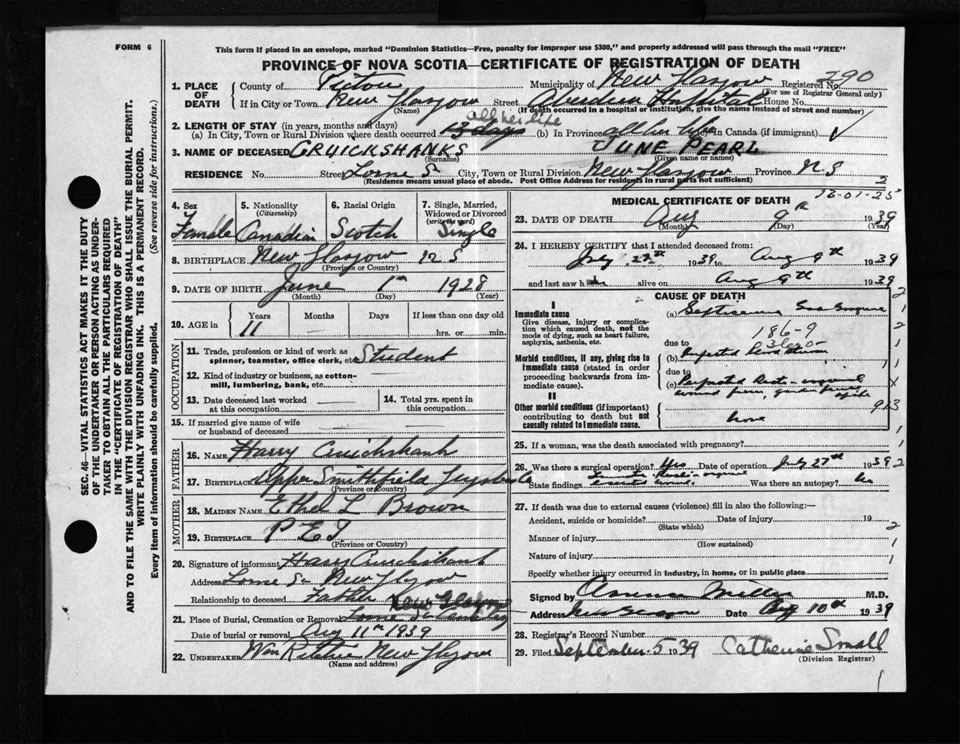 FORM 6
This form if placed in an envelope, marked "Dominion Statistics—Free, penalty for improper use $300," and properly addressed will pass through the mail "FREE"
PROVINCE OF NOVA SCOTIA—CERTIFICATE OF REGISTRATION OF DEATH
SEC. 46—VITAL STATISTICS ACT MAKES IT THE DUTY
OF THE UNDERTAKER OR PERSON ACTING AS UNDER-
TAKER TO OBTAIN ALL THE PARTICULARS REQUIRED
IN THE "CERTIFICATE OF REGISTRATION OF DEATH"
AND TO FILE THE SAME WITH THE DIVISION REGISTRAR WHO SHALL ISSUE THE BURIAL PERMIT.
WRITE PLAINLY WITH UNFADING INK. THIS IS A PERMANENT RECORD.
Every item of information should be carefully supplied. (See reverse side for instructions.)
1. PLACE OF DEATH County of Pictou Municipality of New Glasgow Registered No. 290
(For use of Registrar General only)
If in City or Town New Glasgow Street Aberdeen Hospital House No.
(Name) (If death occurred in a hospital or institution, give the name instead of street and number)
2. LENGTH OF STAY (in years, months and days) all her life
(a) In City, Town or Rural Division where death occurred 13 days (b) In Province all her life In Canada (if immigrant)
3. NAME OF DECEASED CRUICKSHANKS JUNE PEARL
(Surname) (Given name or names)
RESIDENCE No. Street Lorne St City, Town or Rural Division New Glasgow Province N.S
(Residence means usual place of abode. Post Office Address for residents in rural parts not sufficient)
4. Sex 5. Nationality (Citizenship) 6. Racial Origin 7. Single, Married, Widowed or Divorced (write the word)
Female Canadian Scotch Single
8. BIRTHPLACE New Glasgow N S
(Province or Country)
9. DATE OF BIRTH June 1st 1928
(Month) (Day) (Year)
10. AGE in Years Months Days If less than one day
11 hrs. or min.
OCCUPATION
11. Trade, profession or kind of work as spinner, teamster, office clerk, etc. Student
12. Kind of industry or business, as cotton-mill, lumbering, bank, etc.
13. Date deceased last worked at this occupation
14. Total yrs. spent in this occupation
15. If married give name of wife or husband of deceased
FATHER
16. Name Harry Cruickshank
17. Birthplace Upper Smithfield Guysboro Co
(Province or Country)
MOTHER
18. Maiden Name Ethel L Brown
19. Birthplace P E I
(Province or Country)
20. Signature of informant Harry Cruickshank
Address Lorne St New Glasgow
Relationship to deceased Father
21. Place of Burial, Cremation or Removal Lorne St Cemetery New Glasgow
Date of burial or removal Aug 11th 1939
22. UNDERTAKER Wm Ritchie New Glasgow
(Name and address)
MEDICAL CERTIFICATE OF DEATH
23. DATE OF DEATH Aug 9th 1939
(Month) (Day) (Year)
24. I HEREBY CERTIFY that I attended deceased from:
July 27th 1939 to Aug 9th 1939
and last saw h alive on Aug 9th 1939
CAUSE OF DEATH
I
Immediate cause
Give disease, injury or complication which caused death, not the mode of dying, such as heart failure, asphyxia, asthenia, etc.
(a) Septicaemia Gas Gangrene
186-9
due to
(b)
Morbid conditions, if any, giving rise to immediate cause (stated in order proceeding backwards from immediate cause).
due to
(c)
II
Other morbid conditions (if important) contributing to death but not causally related to immediate cause.
none
923
25. If a woman, was the death associated with pregnancy?
26. Was there a surgical operation? Yes Date of operation July 27th 1939
State findings Was there an autopsy? No
27. If death was due to external causes (violence) fill in also the following:—
Accident, suicide or homicide? Date of injury 19
(State which)
Manner of injury
(How sustained)
Nature of injury
Specify whether injury occurred in industry, in home, or in public place
Signed by Clarence Miller M.D.
Address New Glasgow Date Aug 10th 1939
28. Registrar's Record Number
29. Filed September 5 1939 Catherine Small
(Division Registrar)